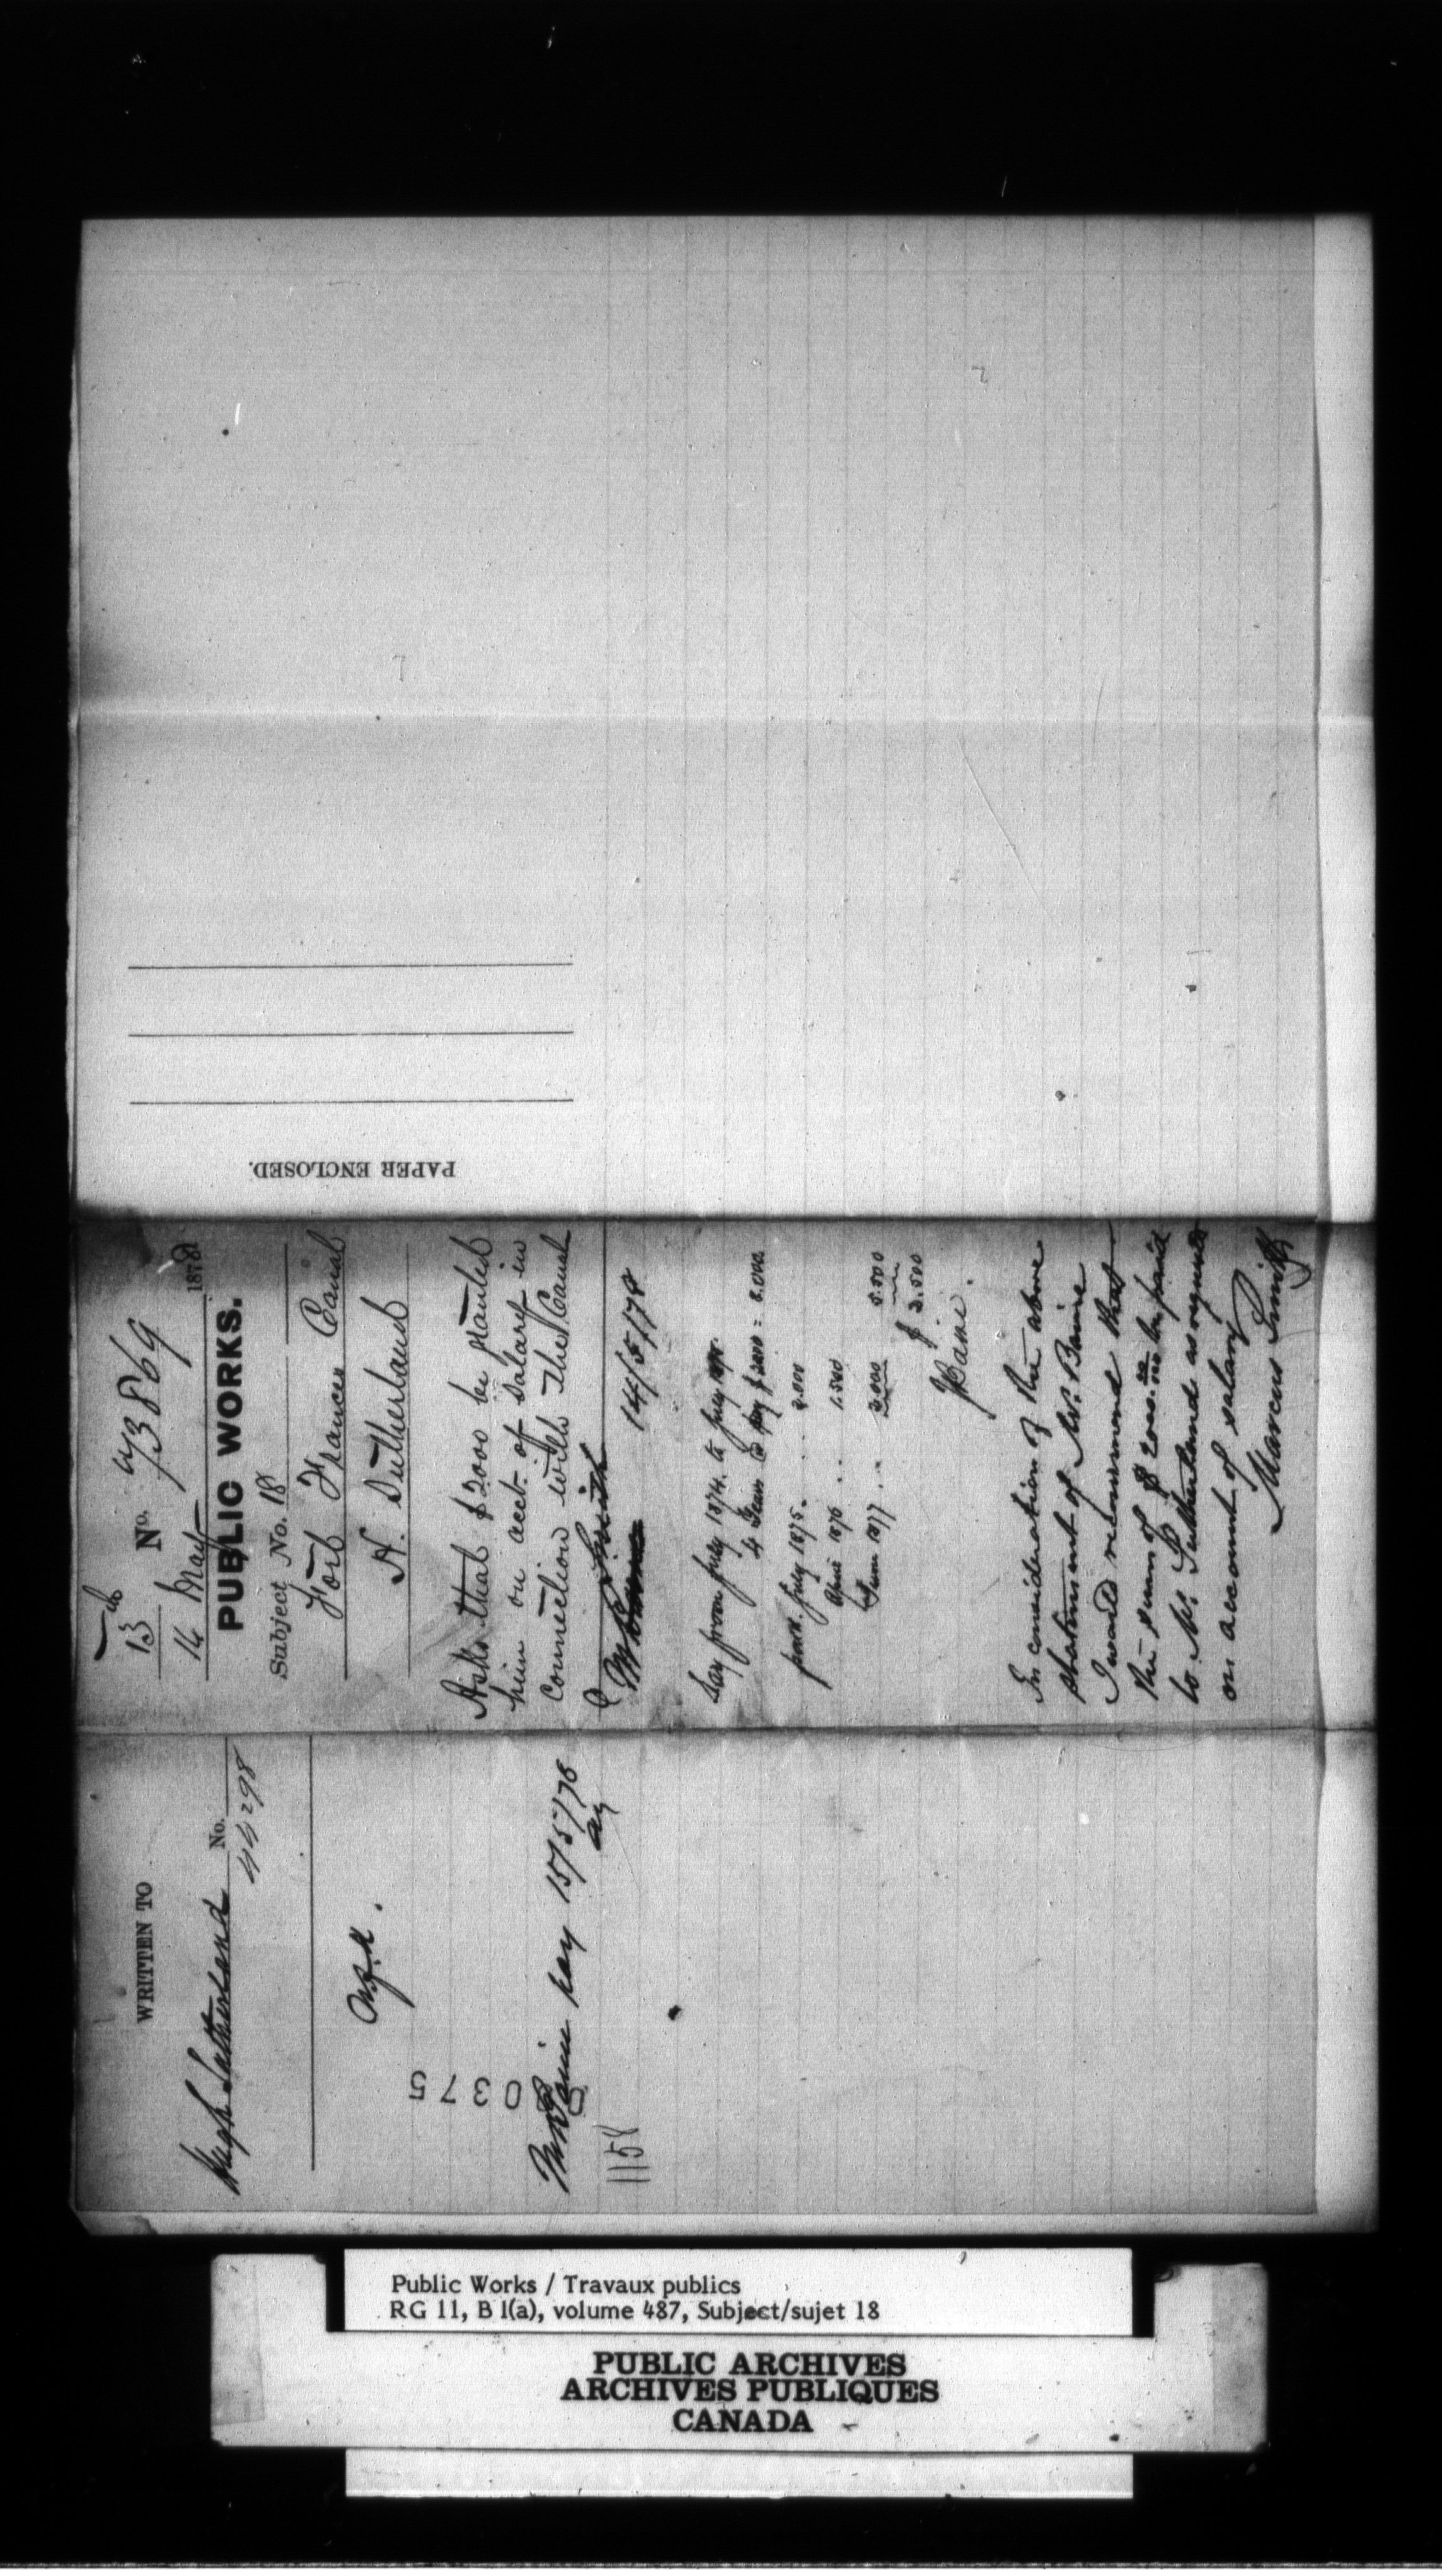 WRITTEN TO
Hugh Sutherland No.
44298
Mr Baine pay 15/5/78
1158
0375
13th No. 73869
14 May 1878
PUBLIC WORKS.
Subject No. 18
Fort Frances Canal
H. Sutherland
Asks that $2000 be granted
him on acct. of salary in
connection with the Canal
Smith
14/5/78
Say from July 1874 to July 1878
4 Years @ $2000 = 8.000
paid. July 1875 . . . 2.000
April 1876 . . . 1.500
June 1877 . . . 2.000
5.500
$ 2.500
Baine.
In consideration of the above
statement of Mr. Baine
I would recommend that
the sum of $2000.00 be paid
to Mr. Sutherland as requested
on account of salary
Marcus Smith
PAPER ENCLOSED.
Public Works / Travaux publics
RG 11, B 1(a), volume 487, Subject/sujet 18
PUBLIC ARCHIVES
ARCHIVES PUBLIQUES
CANADA